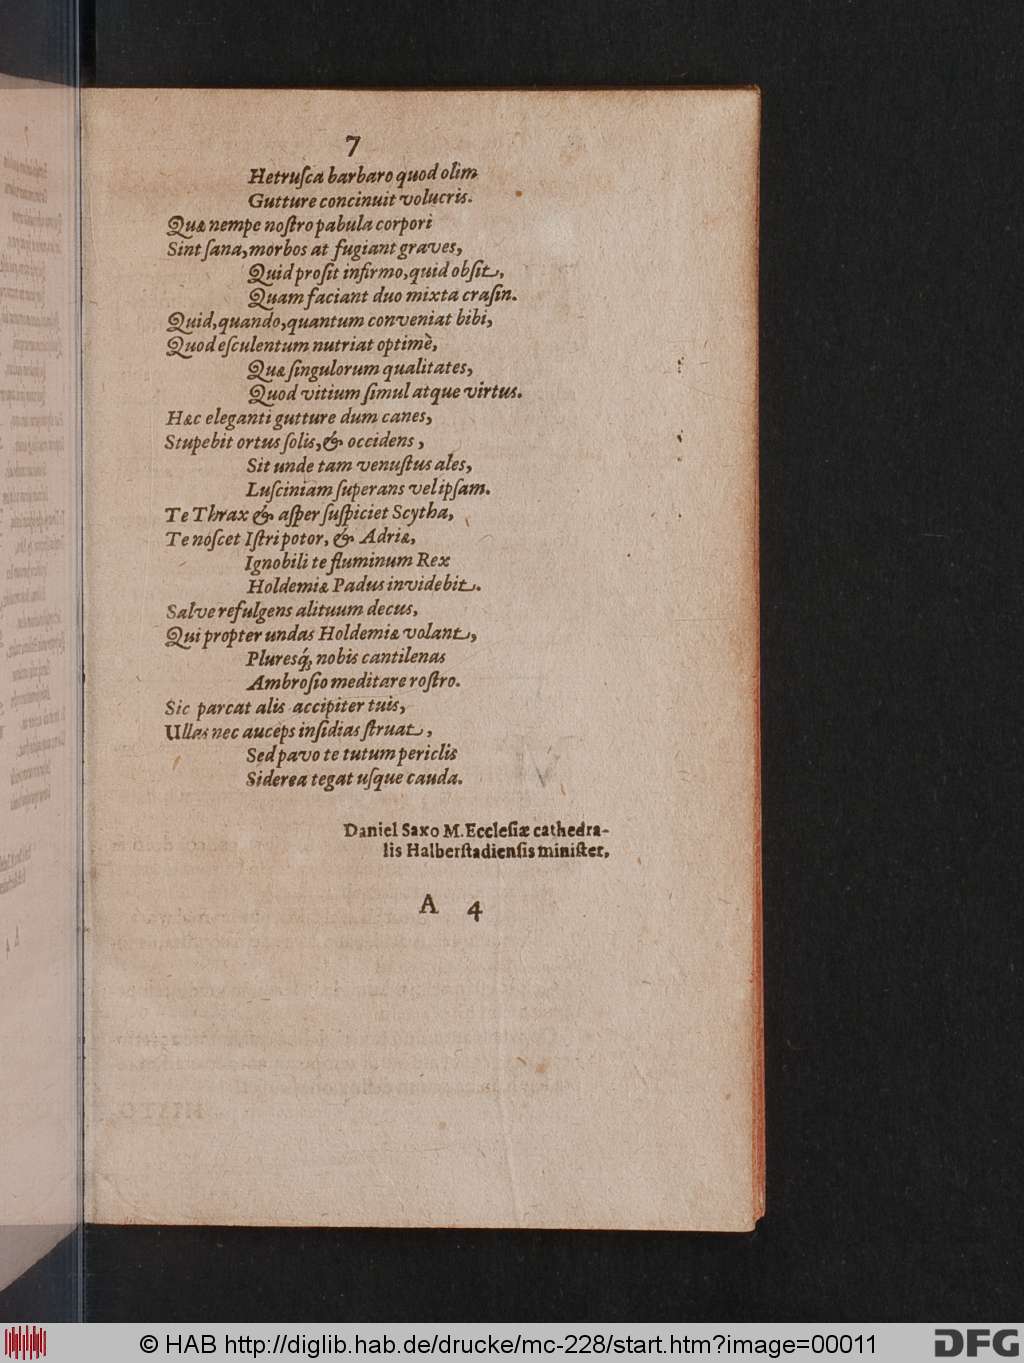 7
Hetruſca barbaro quod olim
Gutture concinuit volucris.
Quæ nempe noſtro pabula corpori
Sint ſana, morbos at fugiant graves,
Quid proſit infirmo, quid obſit,
Quam faciant duo mixta craſin.
Quid, quando, quantum conveniat bibi,
Quod eſculentum nutriat optimè,
Quæ ſingulorum qualitates,
Quod vitium ſimul atque virtus.
Hæc eleganti gutture dum canes,
Stupebit ortus ſolis, & occidens,
Sit unde tam venuſtus ales,
Luſciniam ſuperans vel ipſam.
Te Thrax & aſper ſuſpiciet Scytha,
Te noſcet Iſtri potor, & Adriæ,
Ignobili te fluminum Rex
Holdemiæ Padus invidebit.
Salve refulgens alituum decus,
Qui propter undas Holdemiæ volant,
Pluresq́; nobis cantilenas
Ambroſio meditare roſtro.
Sic parcat alis accipiter tuis,
Ullas nec auceps inſidias ſtruat,
Sed pavo te tutum periclis
Siderea tegat uſque cauda.
Daniel Saxo M. Eccleſiæ cathedra-
lis Halberſtadienſis miniſter,
A 4
© HAB http://diglib.hab.de/drucke/mc-228/start.htm?image=00011
DFG